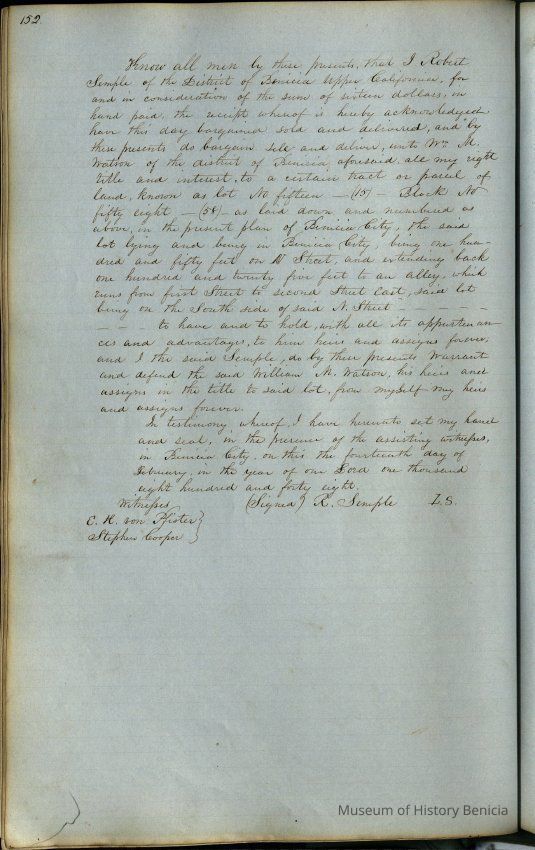 152
Know all men by these presents, that I Robert
Semple of the District of Benicia Upper California, for
and in consideration of the sum of sixteen dollars, in
hand paid, the receipt whereof is hereby acknowledged
have this day bargained sold and delivered, and by
these presents do bargain sell and deliver, unto Wm. M.
Watson of the district of Benicia aforesaid, all my right
title and interest, to a certain tract or parcel of
land, known as lot No fifteen – (15) – Block No
fifty eight – (58) – as laid down and numbered as
above, in the present plan of Benicia City, the said
lot lying and being in Benicia City, being one hun-
dred and fifty feet on N Street, and extending back
one hundred and twenty five feet to an alley, which
runs from first Street to second Street East, said lot
being on the South side of said N. Street – – –
– – – to have and to hold, with all its appurtenan-
ces and advantages, to him heirs and assigns forever,
and I the said Semple, do by these presents Warrant
and defend the said William M. Watson, his heirs and
assigns in the title to said lot, from myself my heirs
and assigns forever.
In testimony whereof, I have hereunto set my hand
and seal, in the presence of the assisting witnesses,
in Benicia City, on this the fourteenth day of
February, in the year of our Lord one thousand
eight hundred and forty eight.
Witnesses (Signed) R. Semple L.S.
C. H. von Pfister }
Stephen Cooper }
Museum of History Benicia